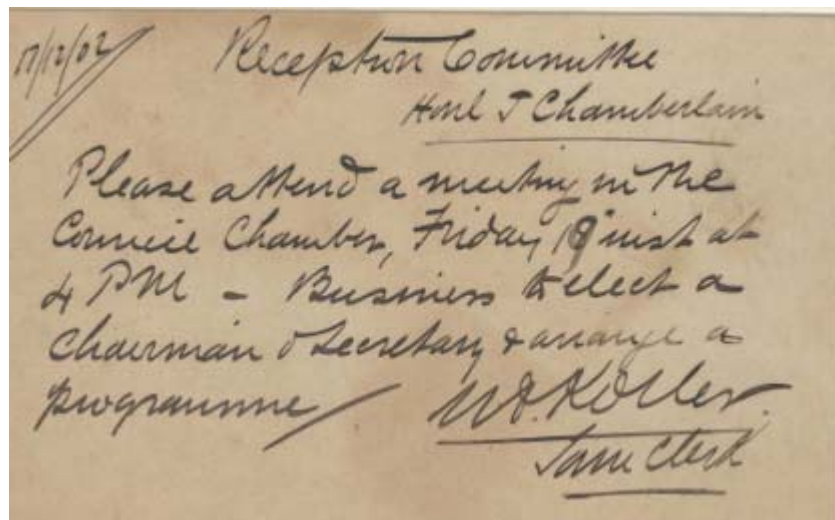 17/12/02
Reception Committee
Honl J Chamberlain
Please attend a meeting in the
Council Chamber, Friday 19" inst at
4 PM - Business to elect a
Chairman & Secretary & arrange a
programme
Town Clerk